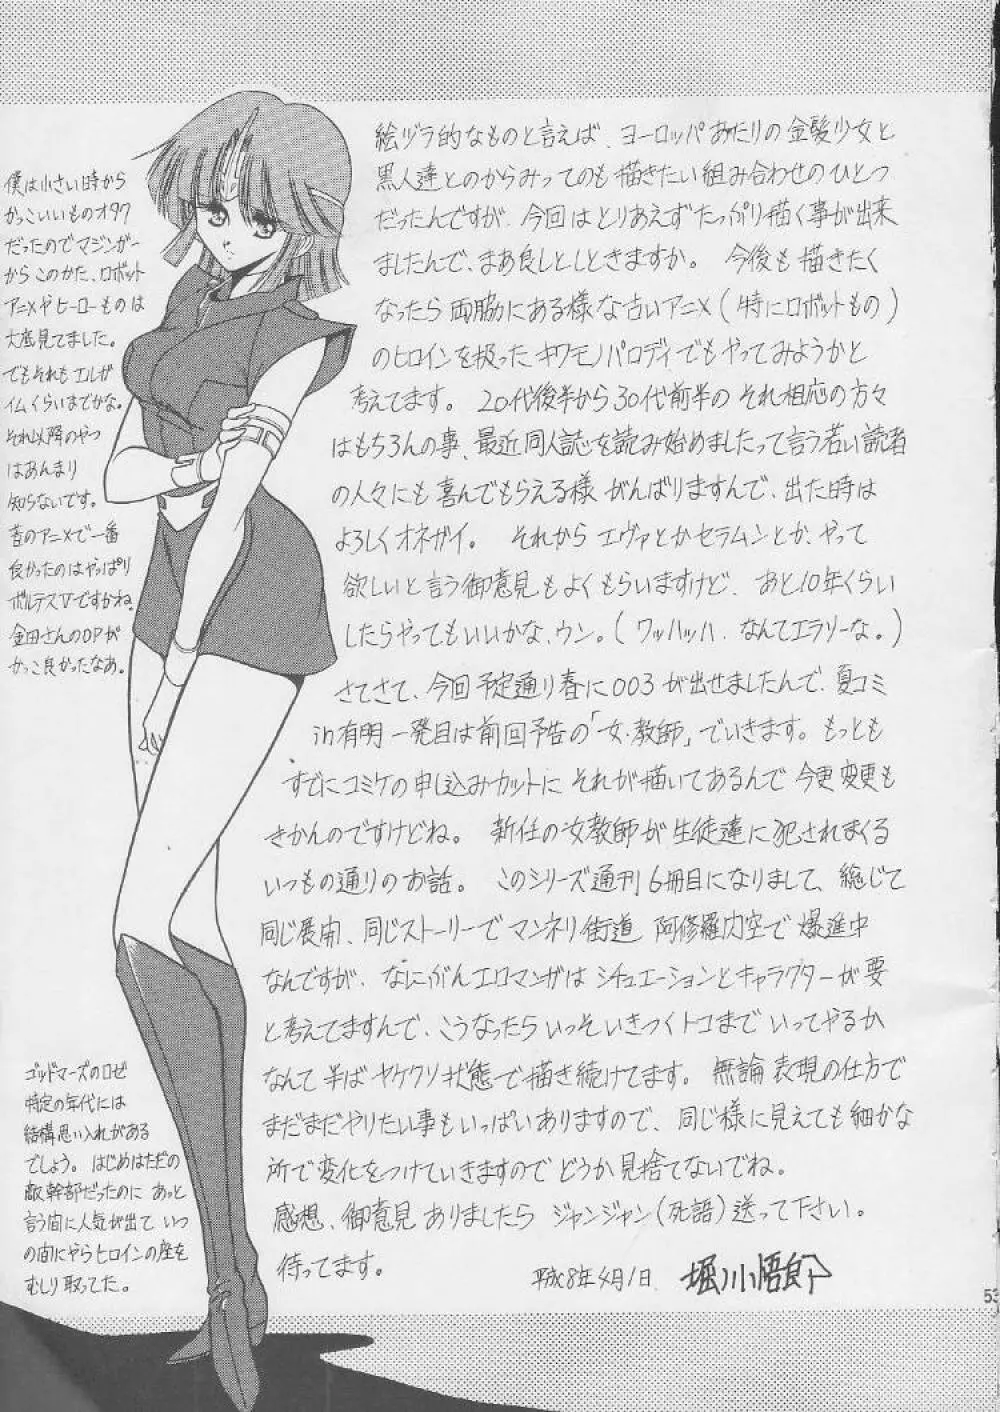 絵ヅラ的なものと言えば、ヨーロッパあたりの金髪少女と
黒人達とのからみってのも描きたい組み合わせのひとつ
だったんですが、今回はとりあえずたっぷり描く事が出来
ましたんで、まあ良しとしときますか。 今後も描きたく
なったら両脇にある様な古いアニメ(特にロボットもの)
のヒロインを扱ったキワモノパロディでもやってみようかと
考えてます。 20代後半から30代前半のそれ相応の方々
はもちろんの事、最近同人誌を読み始めましたって言う若い読者
の人々にも喜んでもらえる様がんばりますんで、出た時は
よろしくオネガイ。 それからエヴァとかセラムンとか、やって
欲しいと言う御意見もよくもらいますけど、あと10年くらい
したらやってもいいかな、ウン。(ワッハッハ、なんてエラソーな。)
さてさて、今回予定通り春に003が出せましたんで、夏コミ
in有明一発目は前回予告の「女・教師」でいきます。もっとも
すでにコミケの申し込みカットにそれが描いてあるんで今更変更も
きかんのですけどね。 新任の女教師が生徒達に犯されまくる
いつもの通りのお話。 このシリーズ通刊6冊目になりまして、総じて
同じ展開、同じストーリーでマンネリ街道 阿修羅内空で爆進中
なんですが、なにぶんエロマンガはシチュエーションとキャラクターが要
と考えてますんで、こうなったらいっそいきつくトコまでいってやるか
なんて半ばヤケクソ状態で描き続けてます。無論表現の仕方で
まだまだやりたい事もいっぱいありますので、同じ様に見えても細かな
所で変化をつけていきますのでどうか見捨てないでね。
感想、御意見ありましたらジャンジャン(死語)送って下さい。
待ってます。
平成8年4月1日 堀川悟郎
僕は小さい時から
かっこいいものオタク
だったのでマジンガー
からこのかた、ロボット
アニメやヒーローものは
大底見てました。
でもそれもエルガ
イムくらいまでかな。
それ以降のやつ
はあんまり
知らないです。
昔のアニメで一番
良かったのはやっぱり
ボルテスVですかね。
金田さんのOPが
かっこ良かったなあ。
ゴッドマーズのロゼ
特定の年代には
結構思い入れがある
でしょう。はじめはただの
敵幹部だったのにあっと
言う間に人気が出ていつ
の間にやらヒロインの座を
むしり取ってた。
53